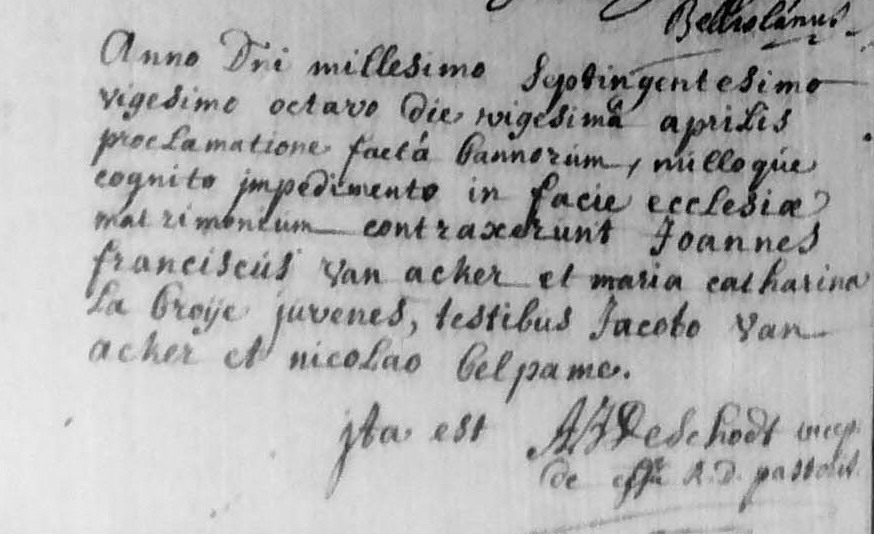 Belliolanus.
Anno Dni millesimo septingentesimo
vigesimo octavo die vigesimâ aprilis
proclamatione factâ bannorum, nulloque
cognito jmpedimento in facie ecclesiæ
matrimonium contraxerunt Joannes
franciscus van acker et maria catharina
La broije juvenes, testibus Jacobo van
acker et nicolao belpame.
jta est AJDeschodt vicep
de R. D. pastoris